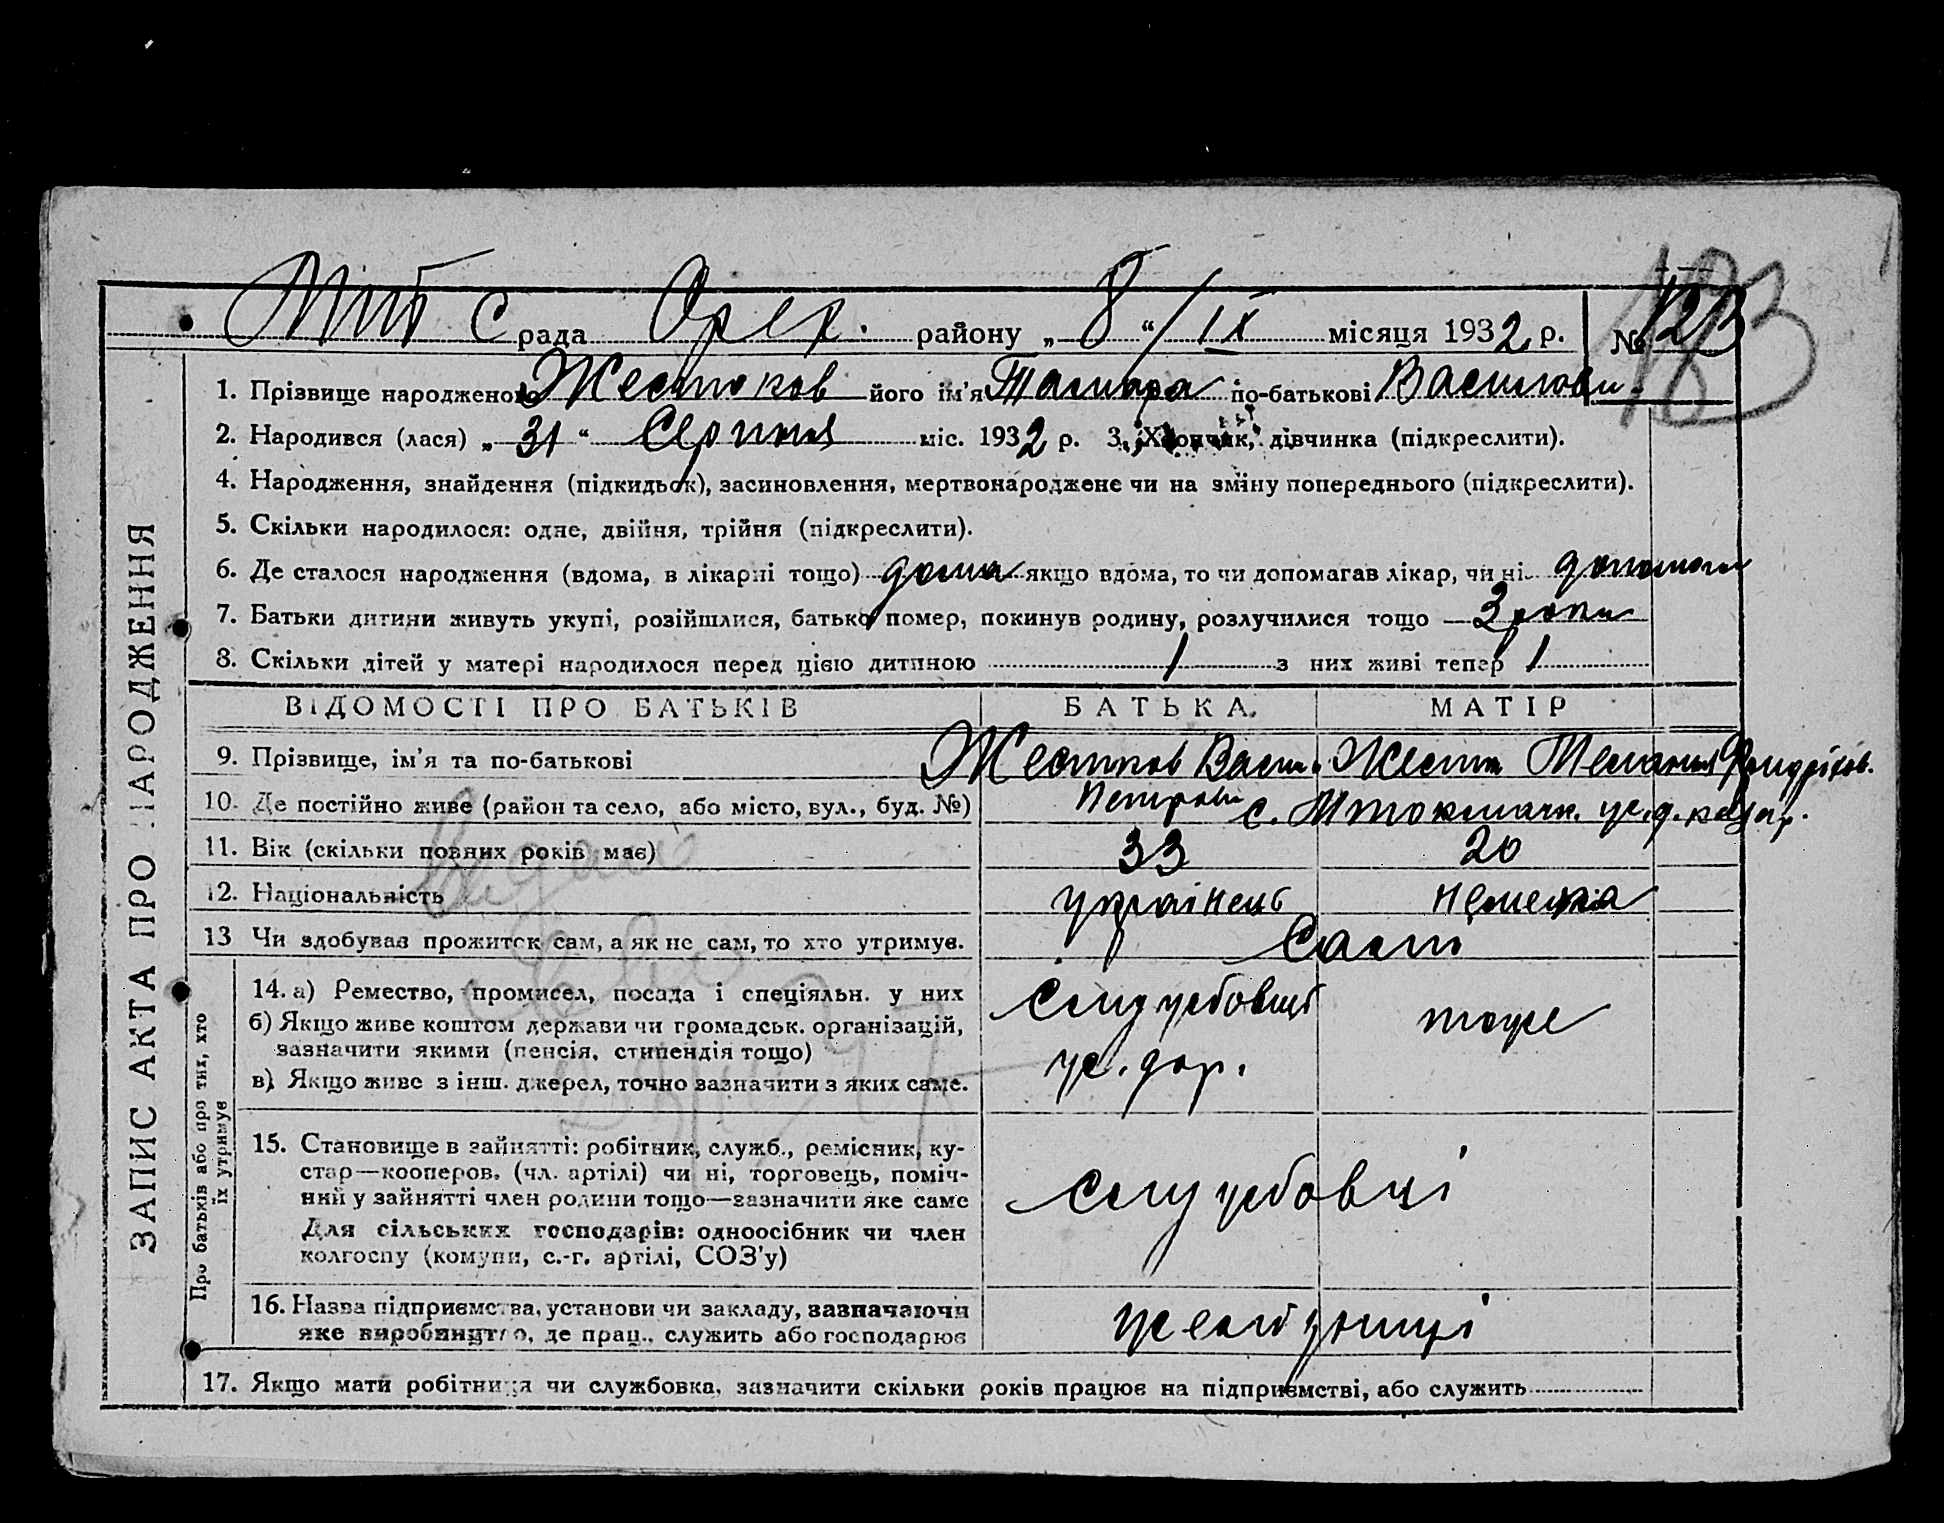 рада Орех. району „ 8 “ / IX місяця 1932 р. № 123
183
ЗАПИС АКТА ПРО НАРОДЖЕННЯ
1. Прізвище народженого Жестков його ім'я Тамара по-батькові Василови
2. Народився (лася) „ 31 “ Серпня міс. 1932 р. 3. Хлопчик, дівчинка (підкреслити).
4. Народження, знайдення (підкидьок), засиновлення, мертвонароджене чи на зміну попереднього (підкреслити).
5. Скільки народилося: одне, двійня, трійня (підкреслити).
6. Де сталося народження (вдома, в лікарні тощо) дома якщо вдома, то чи допомагав лікар, чи ні
7. Батьки дитини живуть укупі, розійшлися, батько помер, покинув родину, розлучилися тощо 3 роки
8. Скільки дітей у матері народилося перед цією дитиною 1 з них живі тепер 1
ВІДОМОСТІ ПРО БАТЬКІВ БАТЬКА МАТІР
9. Прізвище, ім'я та по-батькові Жестков Васил.
Петрови
10. Де постійно живе (район та село, або місто, вул., буд. №) с.
11. Вік (скільки повних років має) 33 20
12. Національність українець немекіа
13 Чи здобував прожиток сам, а як не сам, то хто утримує. Сам
Про батьків або про тих, хто
їх утримує
14. а) Ремество, промисел, посада і спеціяльн. у них служебовці тоже
б) Якщо живе коштом держави чи громадськ. організацій,
зазначити якими (пенсія, стипендія тощо) ж. дор.
в) Якщо живе з інш. джерел, точно зазначити з яких саме.
15. Становище в зайнятті: робітник, служб., ремісник, ку-
стар—кооперов. (чл. артілі) чи ні, торговець, поміч-
ний у зайнятті член родини тощо—зазначити яке саме служебовці
Для сільських господарів: одноосібник чи член
колгоспу (комуни, с.-г. артілі, СОЗ'у)
16. Назва підприємства, установи чи закладу, зазначаючи
яке виробництво, де прац., служить або господарює
17. Якщо мати робітниця чи службовка, зазначити скільки років працює на підприємстві, або служить